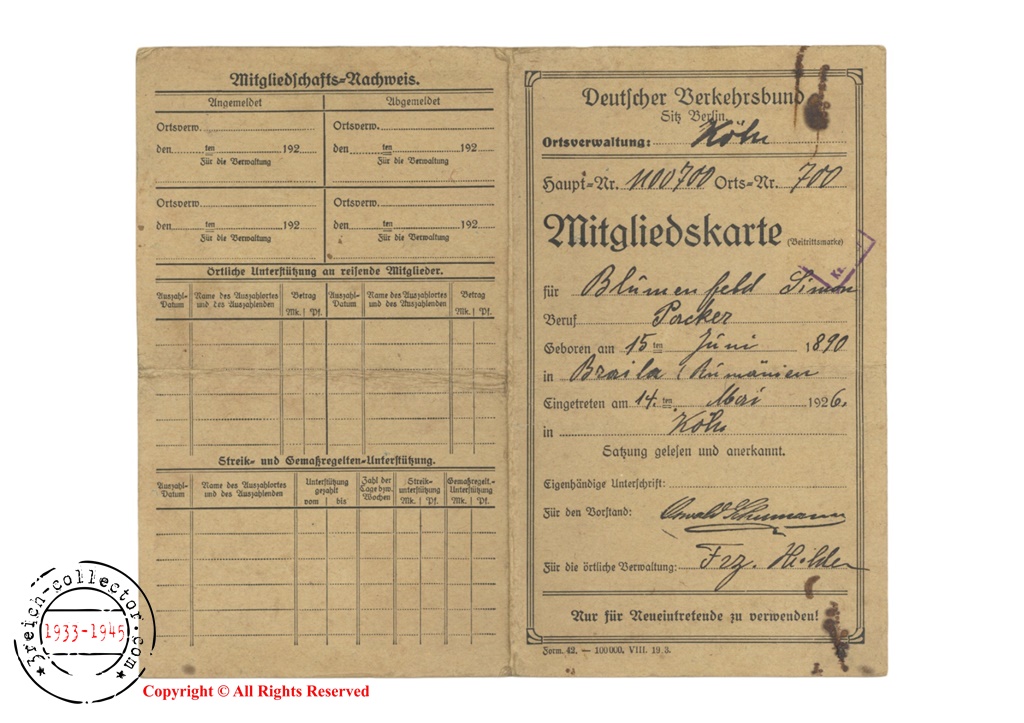 Mitgliedschafts-Nachweis.
Angemeldet
Ortsverw.
den ten 192
Für die Verwaltung
Ortsverw.
den ten 192
Für die Verwaltung
Abgemeldet
Ortsverw.
den ten 192
Für die Verwaltung
Ortsverw.
den ten 192
Für die Verwaltung
Örtliche Unterstützung an reisende Mitglieder.
Auszahl-Datum Name des Auszahlortes und des Auszahlenden Betrag Mk. Pf. Auszahl-Datum Name des Auszahlortes und des Auszahlenden Betrag Mk. Pf.
Streik- und Gemaßregelten-Unterstützung.
Auszahl-Datum Name des Auszahlortes und des Auszahlenden Unterstützung gezahlt vom bis Zahl der Tage bzw. Wochen Streik-unterstützung Mk. Pf. Gemaßregelt.-Unterstützung Mk. Pf.
Deutscher Verkehrsbund
Sitz Berlin.
Ortsverwaltung: Köln
Haupt-Nr. 1100700 Orts-Nr. 700
Mitgliedskarte (Beitrittsmarke)
für Blumenfeld Simon
Beruf Packer
Geboren am 15 ten Juni 1890
in Braila (Rumänien
Eingetreten am 14. ten Mai 1926.
in Köln
Satzung gelesen und anerkannt.
Eigenhändige Unterschrift:
Für den Vorstand: Oswald Schumann
Für die örtliche Verwaltung: Frz. Hilden
Nur für Neueintretende zu verwenden!
Form. 42. — 100 000. VIII. 19. 3.
3reich-collector.com
1933-1945
Copyright © All Rights Reserved